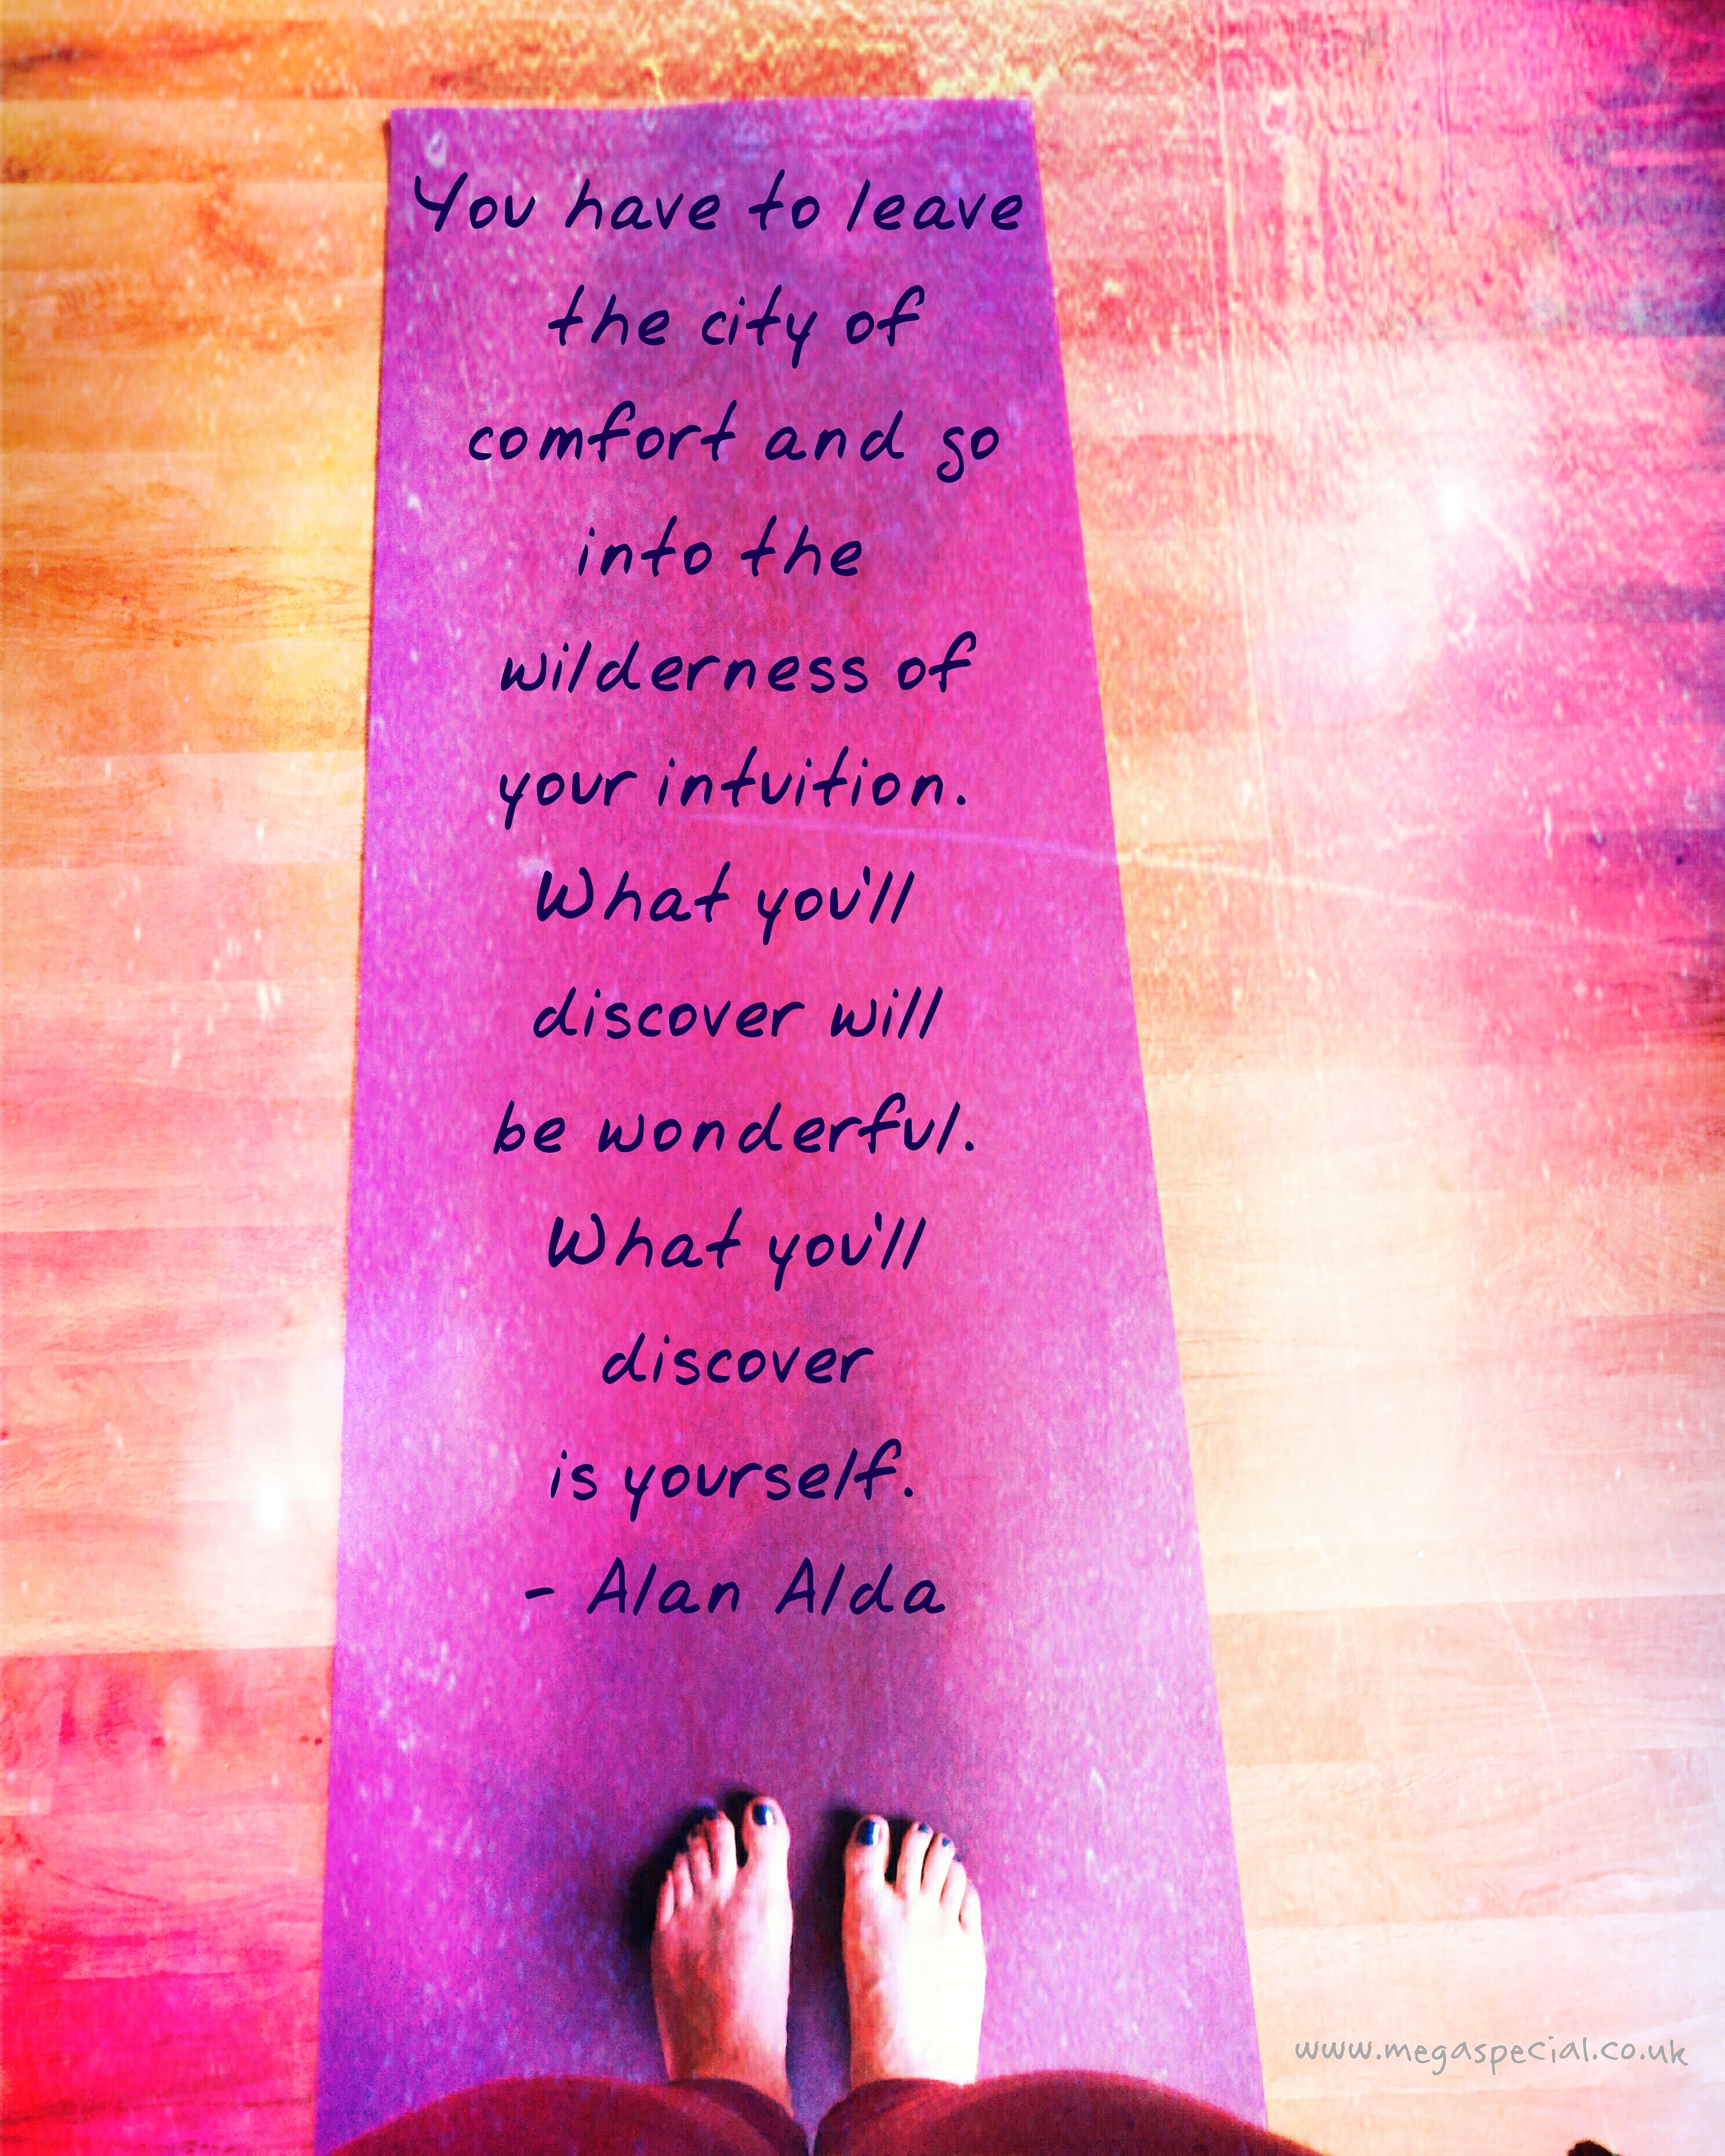 You have to leave
the city of
comfort and go
into the
wilderness of
your intuition.
What you'll
discover will
be wonderful.
What you'll
discover
is yourself.
- Alan Alda
www.megaspecial.co.uk